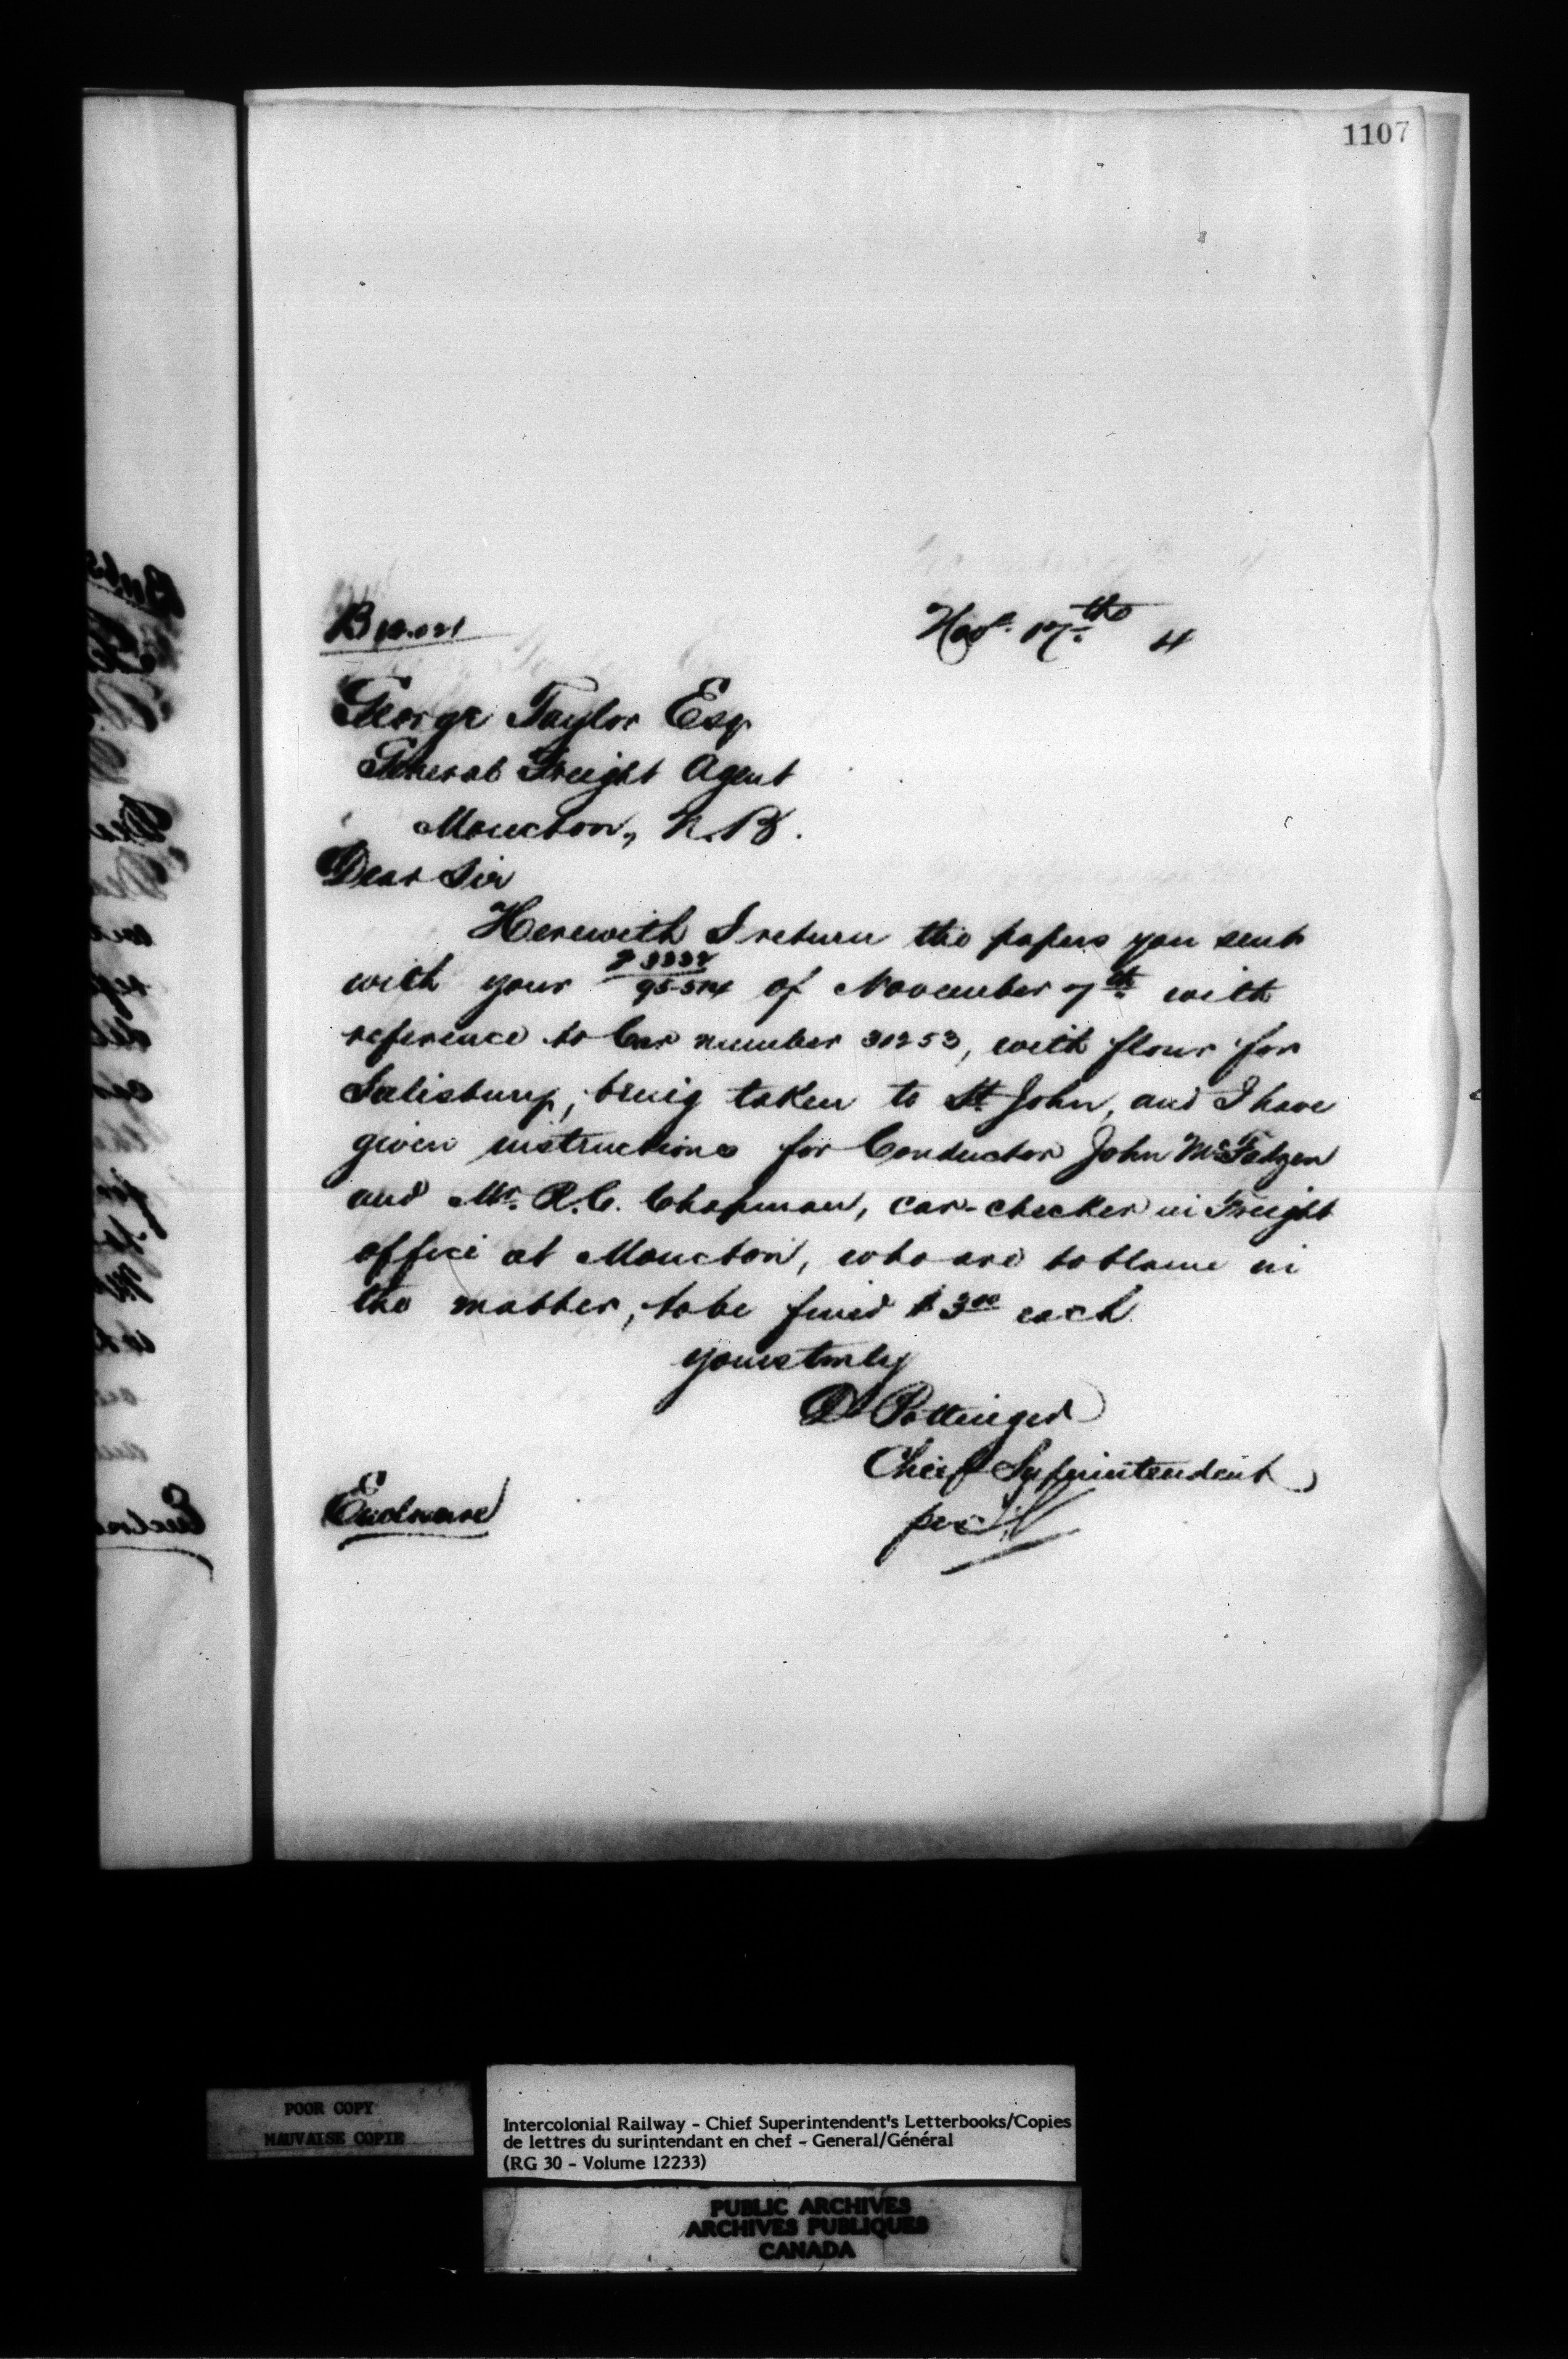 1107
Nov. 17th 4
George Taylor Esq
General Freight Agent
Moncton, N.B.
Dear Sir
Herewith I return the papers you sent
with your of November 7th with
reference to Car number 30253, with flour for
Salisbury, being taken to St John, and I have
given instructions for Conductor John McFadzen
and Mr. R.C. Chapman, car-checker in Freight
office at Moncton, who are to blame in
the matter, to be fined $3.00 each
yours truly
D Pottinger
Chief Superintendent
per
Enclosure
POOR COPY
MAUVAISE COPIE
Intercolonial Railway - Chief Superintendent's Letterbooks/Copies
de lettres du surintendant en chef - General/Général
(RG 30 - Volume 12233)
PUBLIC ARCHIVES
ARCHIVES PUBLIQUES
CANADA